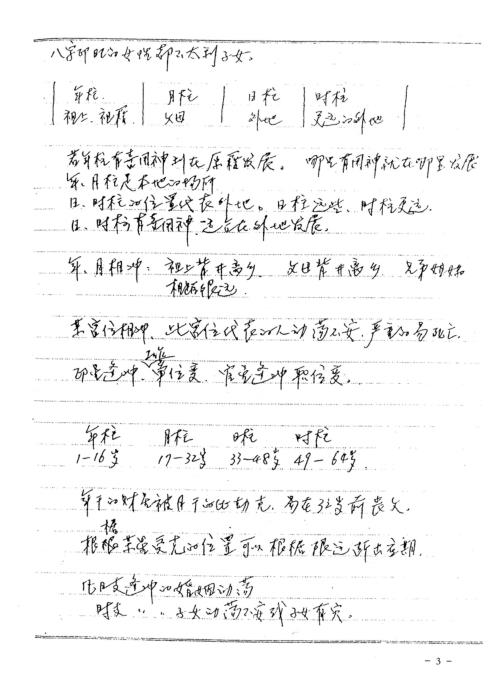 八字印旺的女性都不太利子女。
年柱 月柱 日柱 时柱
祖上、祖籍 父母 外地 更远的外地
若年柱有喜用神利在原籍发展。哪里有用神就在哪里发展
年、月柱是本地的场所
日、时柱的位置代表外地。日柱远些、时柱更远.
日、时柱有喜用神.适合在外地发展。
年、月相冲:祖上背井离乡、父母背井离乡、兄弟姐妹
相距很远.
某宫位相冲、此宫位代表的人动荡不安.严重的易死亡.
工作
印星逢冲、单位变.官星逢冲职位变。
年柱 月柱 日柱 时柱
1-16岁 17-32岁 33-48岁 49-64岁.
年干的财星被月干的比劫克.易在32岁前丧父.
据
根根某星受克的位置可以根据限运断出应期.
凡日支逢冲的婚姻动荡
时支 〃 〃 子女动荡不安或子女有灾。
- 3 -